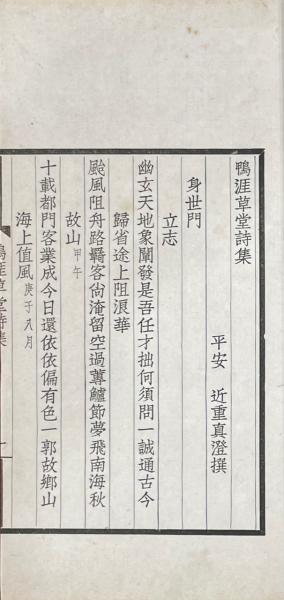 鴨涯草堂詩集
平安　近重真澄撰
身世門
立志
幽玄天地象闡發是吾任才拙何須問一誠通古今
歸省途上阻浪華
颱風阻舟路羇客尙淹留空過蓴鱸節夢飛南海秋
故山甲午
十載都門客業成今日還依依偏有色一郭故鄉山
海上值風庚子八月
鴨涯草堂詩集